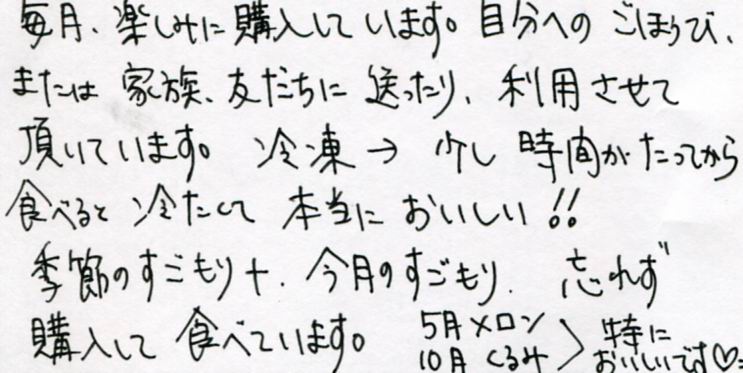 毎月、楽しみに購入しています。自分へのごほうび、
または家族、友だちに送ったり、利用させて
頂いています。冷凍→少し時間がたってから
食べると冷たくて本当においしい!!
季節のすごもり+、今月のすごもり、忘れず
購入して食べています。5月メロン 10月くるみ 〉特においしいです♡